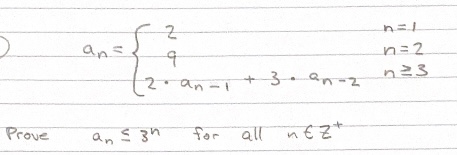 a_n = { 2 n=1
9 n=2
2 · a_{n-1} + 3 · a_{n-2} n≥3
Prove a_n ≤ 3^n for all n ∈ Z^+